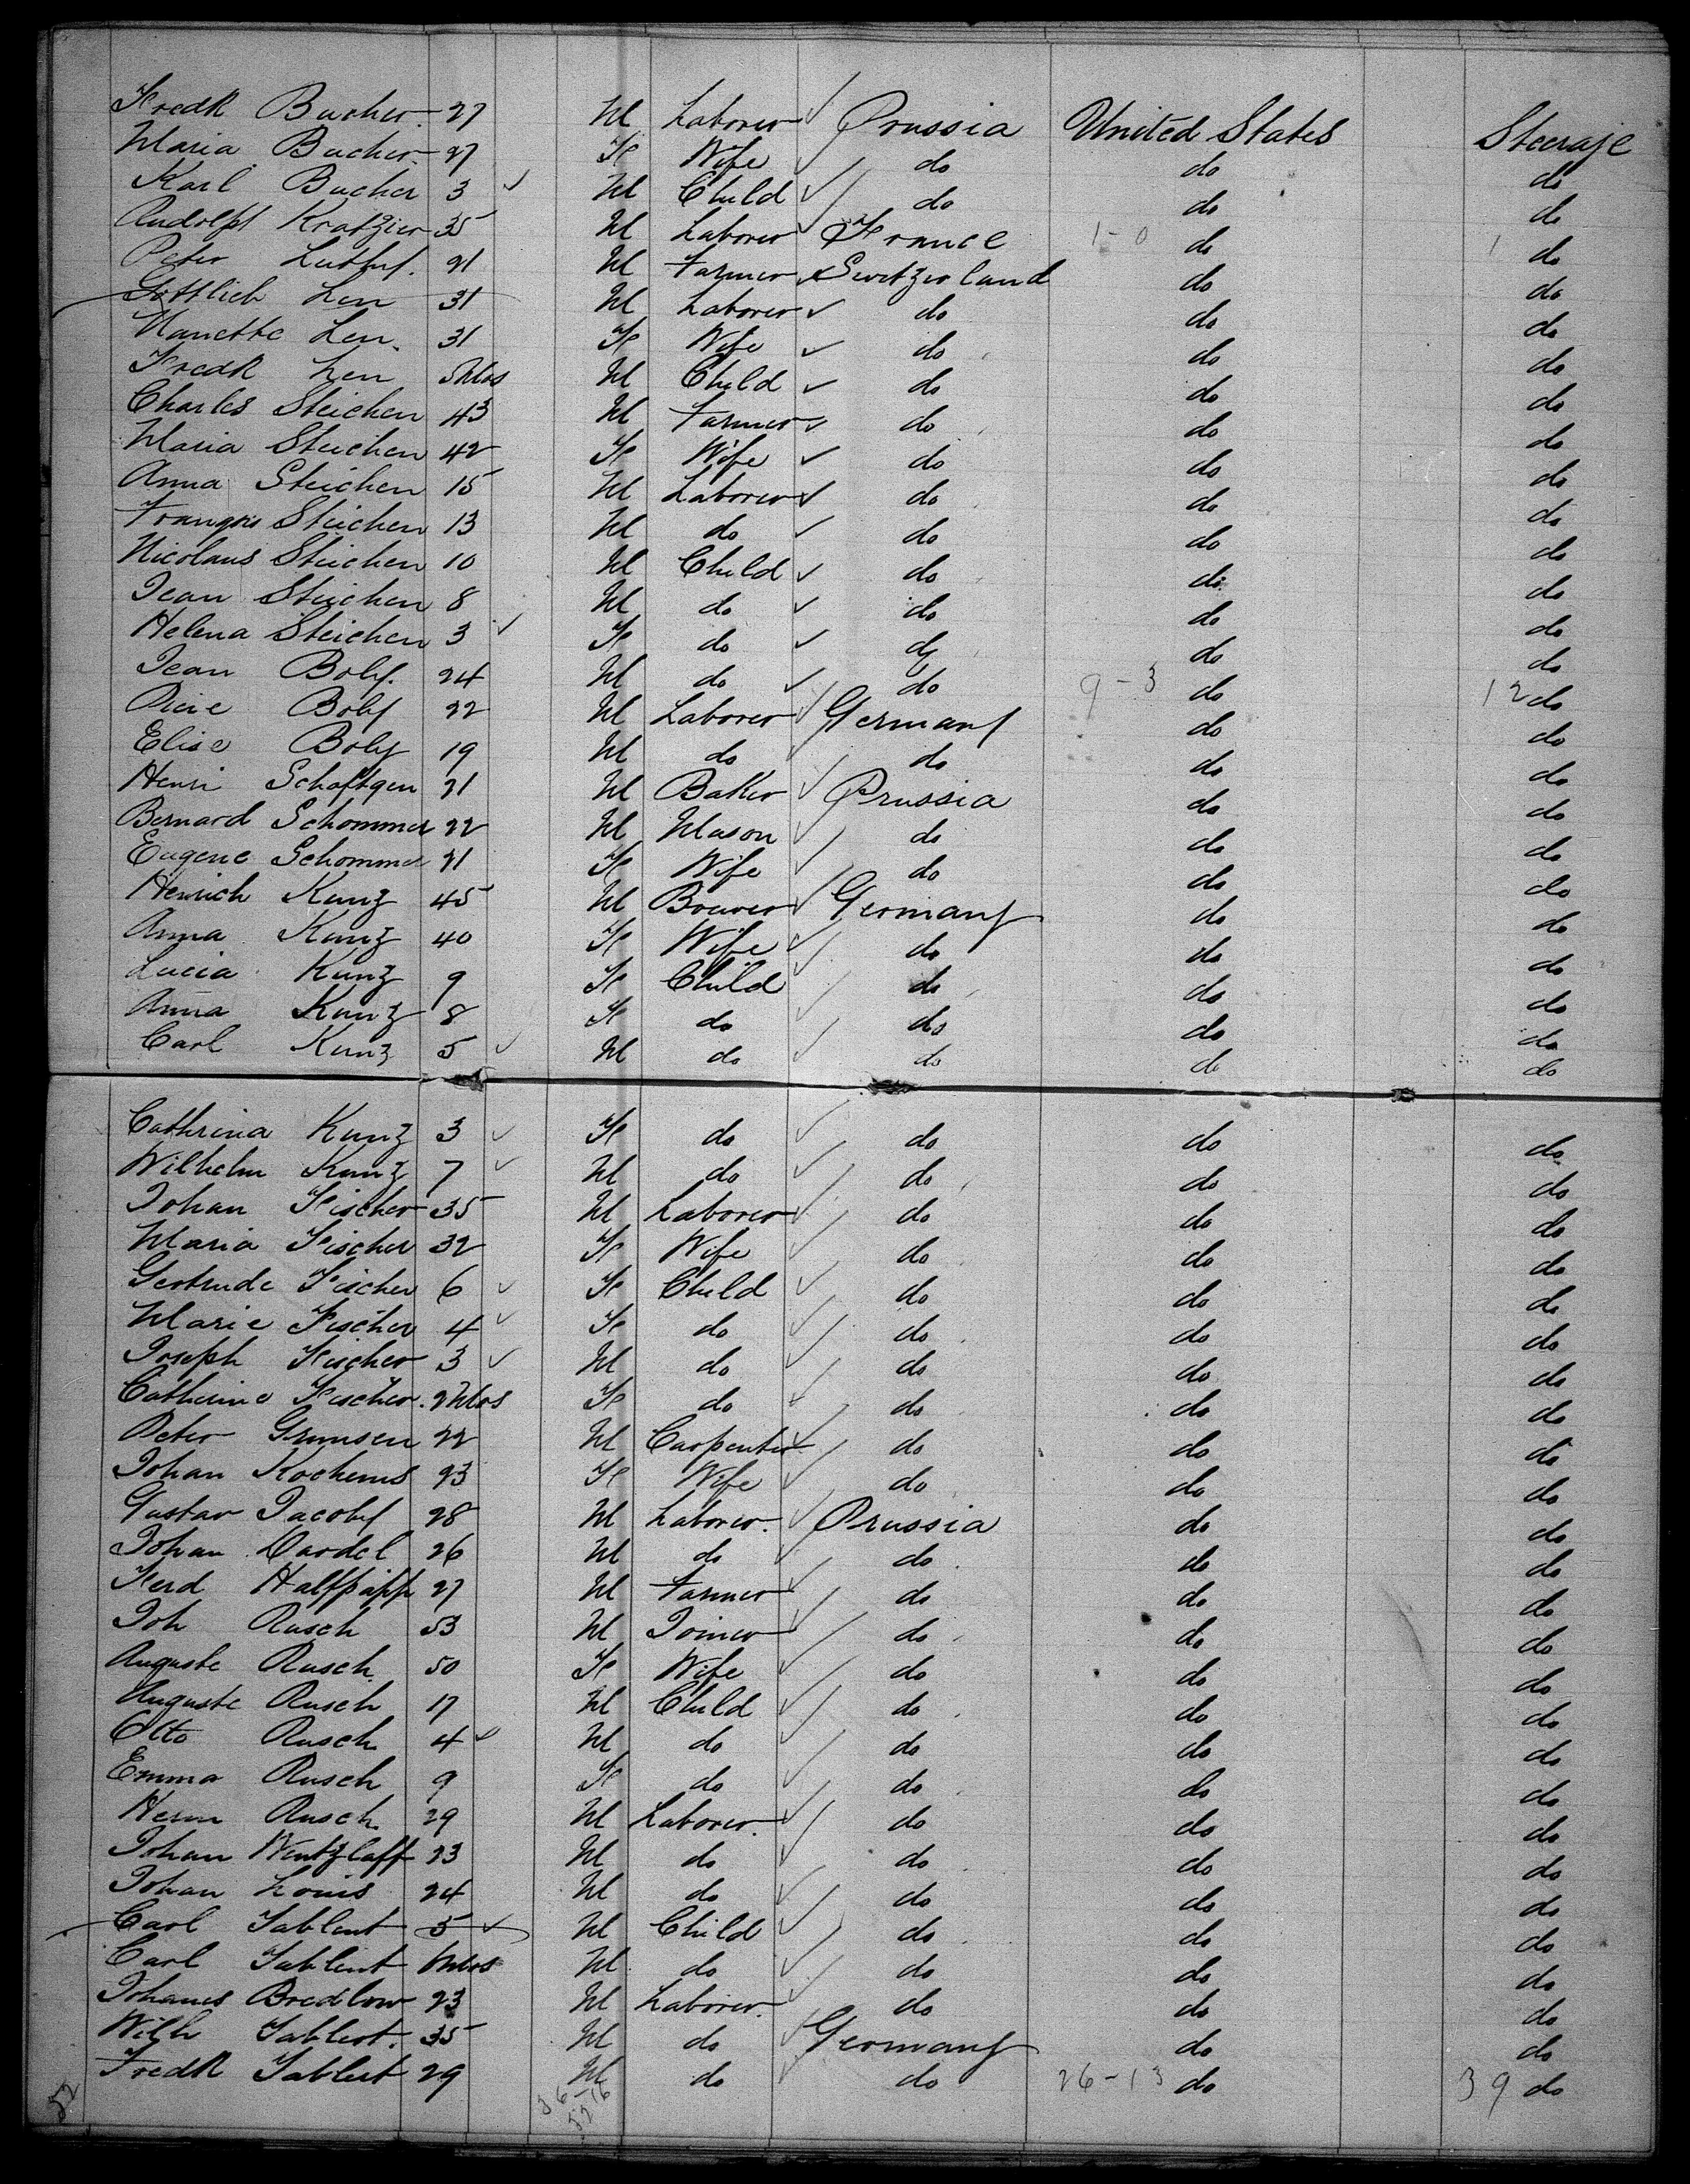 Fredk Bucher 27 M Laborer Prussia United States Steeraje
Maria Bucher 27 F Wife do do do
Karl Bucher 3 M Child do do do
Rudolph Kratzier 35 M Laborer France 1-0 do 1 do
Peter 21 M Farmer Switzerland do do
Gottlieb Len 31 M Laborer do do do
Nanette Len 31 F Wife do do do
Fredk Len 5 Mos M Child do do do
Charles Steichen 43 M Farmer do do do
Maria Steichen 42 F Wife do do do
Anna Steichen 15 M Laborer do do do
François Steichen 13 M do do do do
Nicolaus Steichen 10 M Child do do do
Jean Steichen 8 M do do do do
Helena Steichen 3 F do do do do
Jean Boly 24 M do do 9-3 do 12 do
Boly 22 M Laborer Germany do do
Elise Boly 19 M do do do do
Henri Schaftgen 21 M Baker Prussia do do
Bernard Schommer 22 M Mason do do do
Eugene Schommer 21 F Wife do do do
Henrich Kunz 45 M Brewer Germany do do
Anna Kunz 40 F Wife do do do
Lucia Kunz 9 F Child do do do
Anna Kunz 8 F do do do do
Carl Kunz 5 M do do do do
Cathrina Kunz 3 F do do do do
Wilhelm Kunz 7 M do do do do
Johan Fischer 35 M Laborer do do do
Maria Fischer 32 F Wife do do do
Gertrude Fischer 6 F Child do do do
Marie Fischer 4 F do do do do
Joseph Fischer 3 M do do do do
Catherine Fischer 2 Mos F do do do do
Peter 22 M Carpenter do do do
Johan Kochems 23 F Wife do do do
Gustav Jacoby 28 M Laborer Prussia do do
Johan 26 M do do do do
Ferd Halfpapp 27 M Farmer do do do
Joh Rusch 53 M Joiner do do do
Auguste Rusch 50 F Wife do do do
Auguste Rusch 17 M Child do do do
Otto Rusch 4 M do do do do
Emma Rusch 9 F do do do do
Herm Rusch 29 M Laborer do do do
Johan Wentzlaff 23 M do do do do
Johan Louis 24 M do do do do
Carl 5 M Child do do do
Carl Mos M do do do do
Johanes Bredlow 23 M Laborer do do do
Wilh 35 M do Germany do do
Fredk 29 M do do 26-13 do 39 do
52 36-16
52